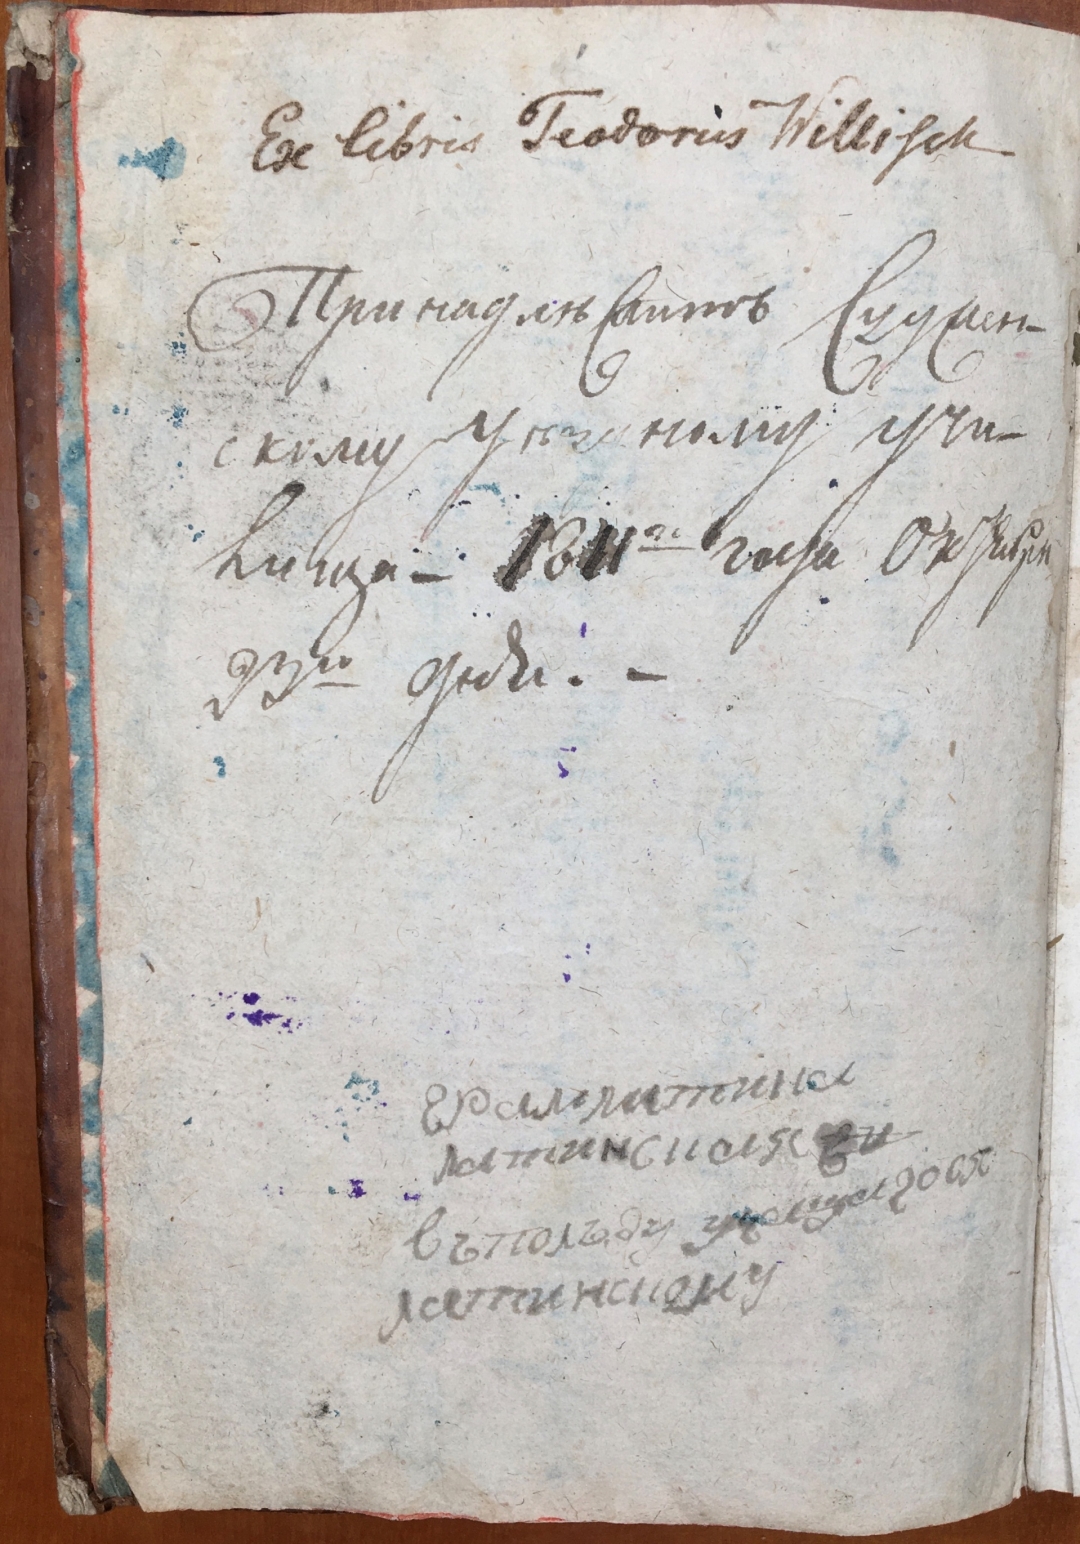 Ex libris Teodorius Willisch
Принадлѣжитъ Суджен-
скому уѣздному учи-
лища – 1811го года Октября
23го дня. –
граматика
латинская
въ ползу учащагося
латинскому